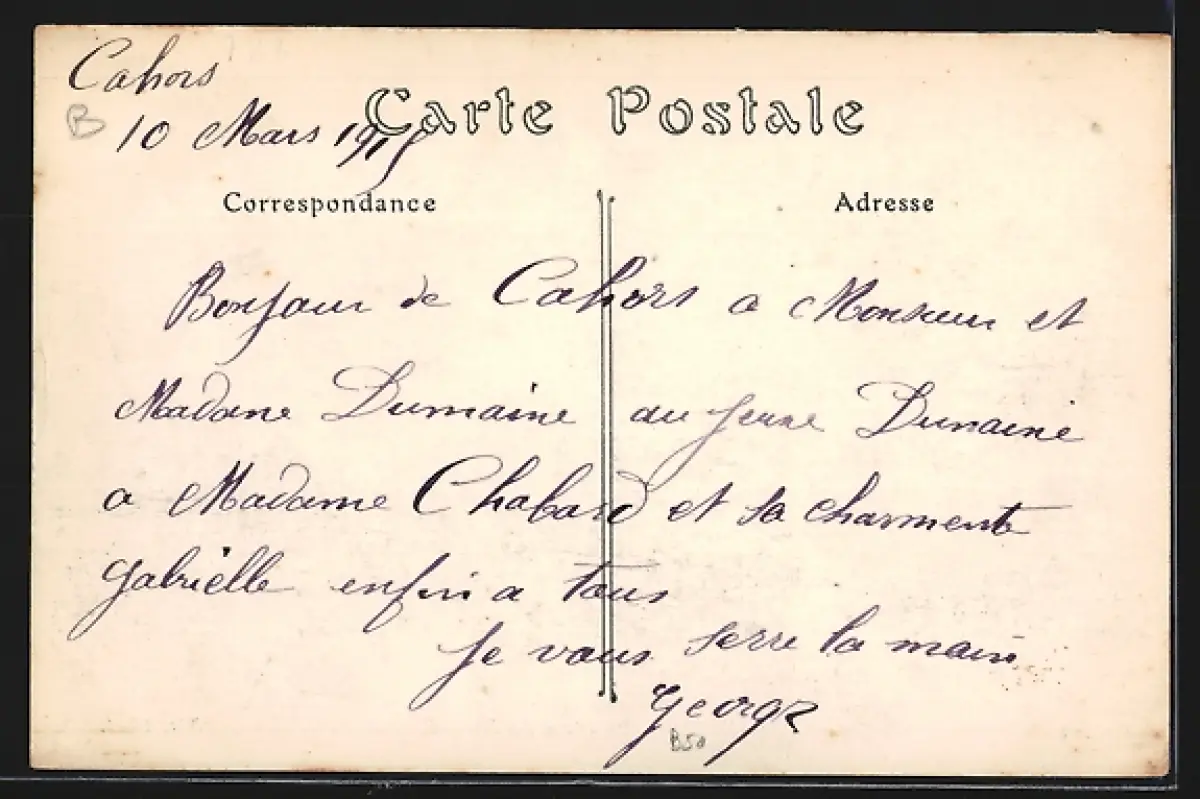 Cahors
B
10 Mars 1915
Carte Postale
Correspondance
Adresse
Bonjour de Cahors a Monsieur et
Madame Dumaine au jeune Dumaine
a Madame Chabard et sa charmente
Gabrielle enfin a tous
Je vous serre la main
George
B50